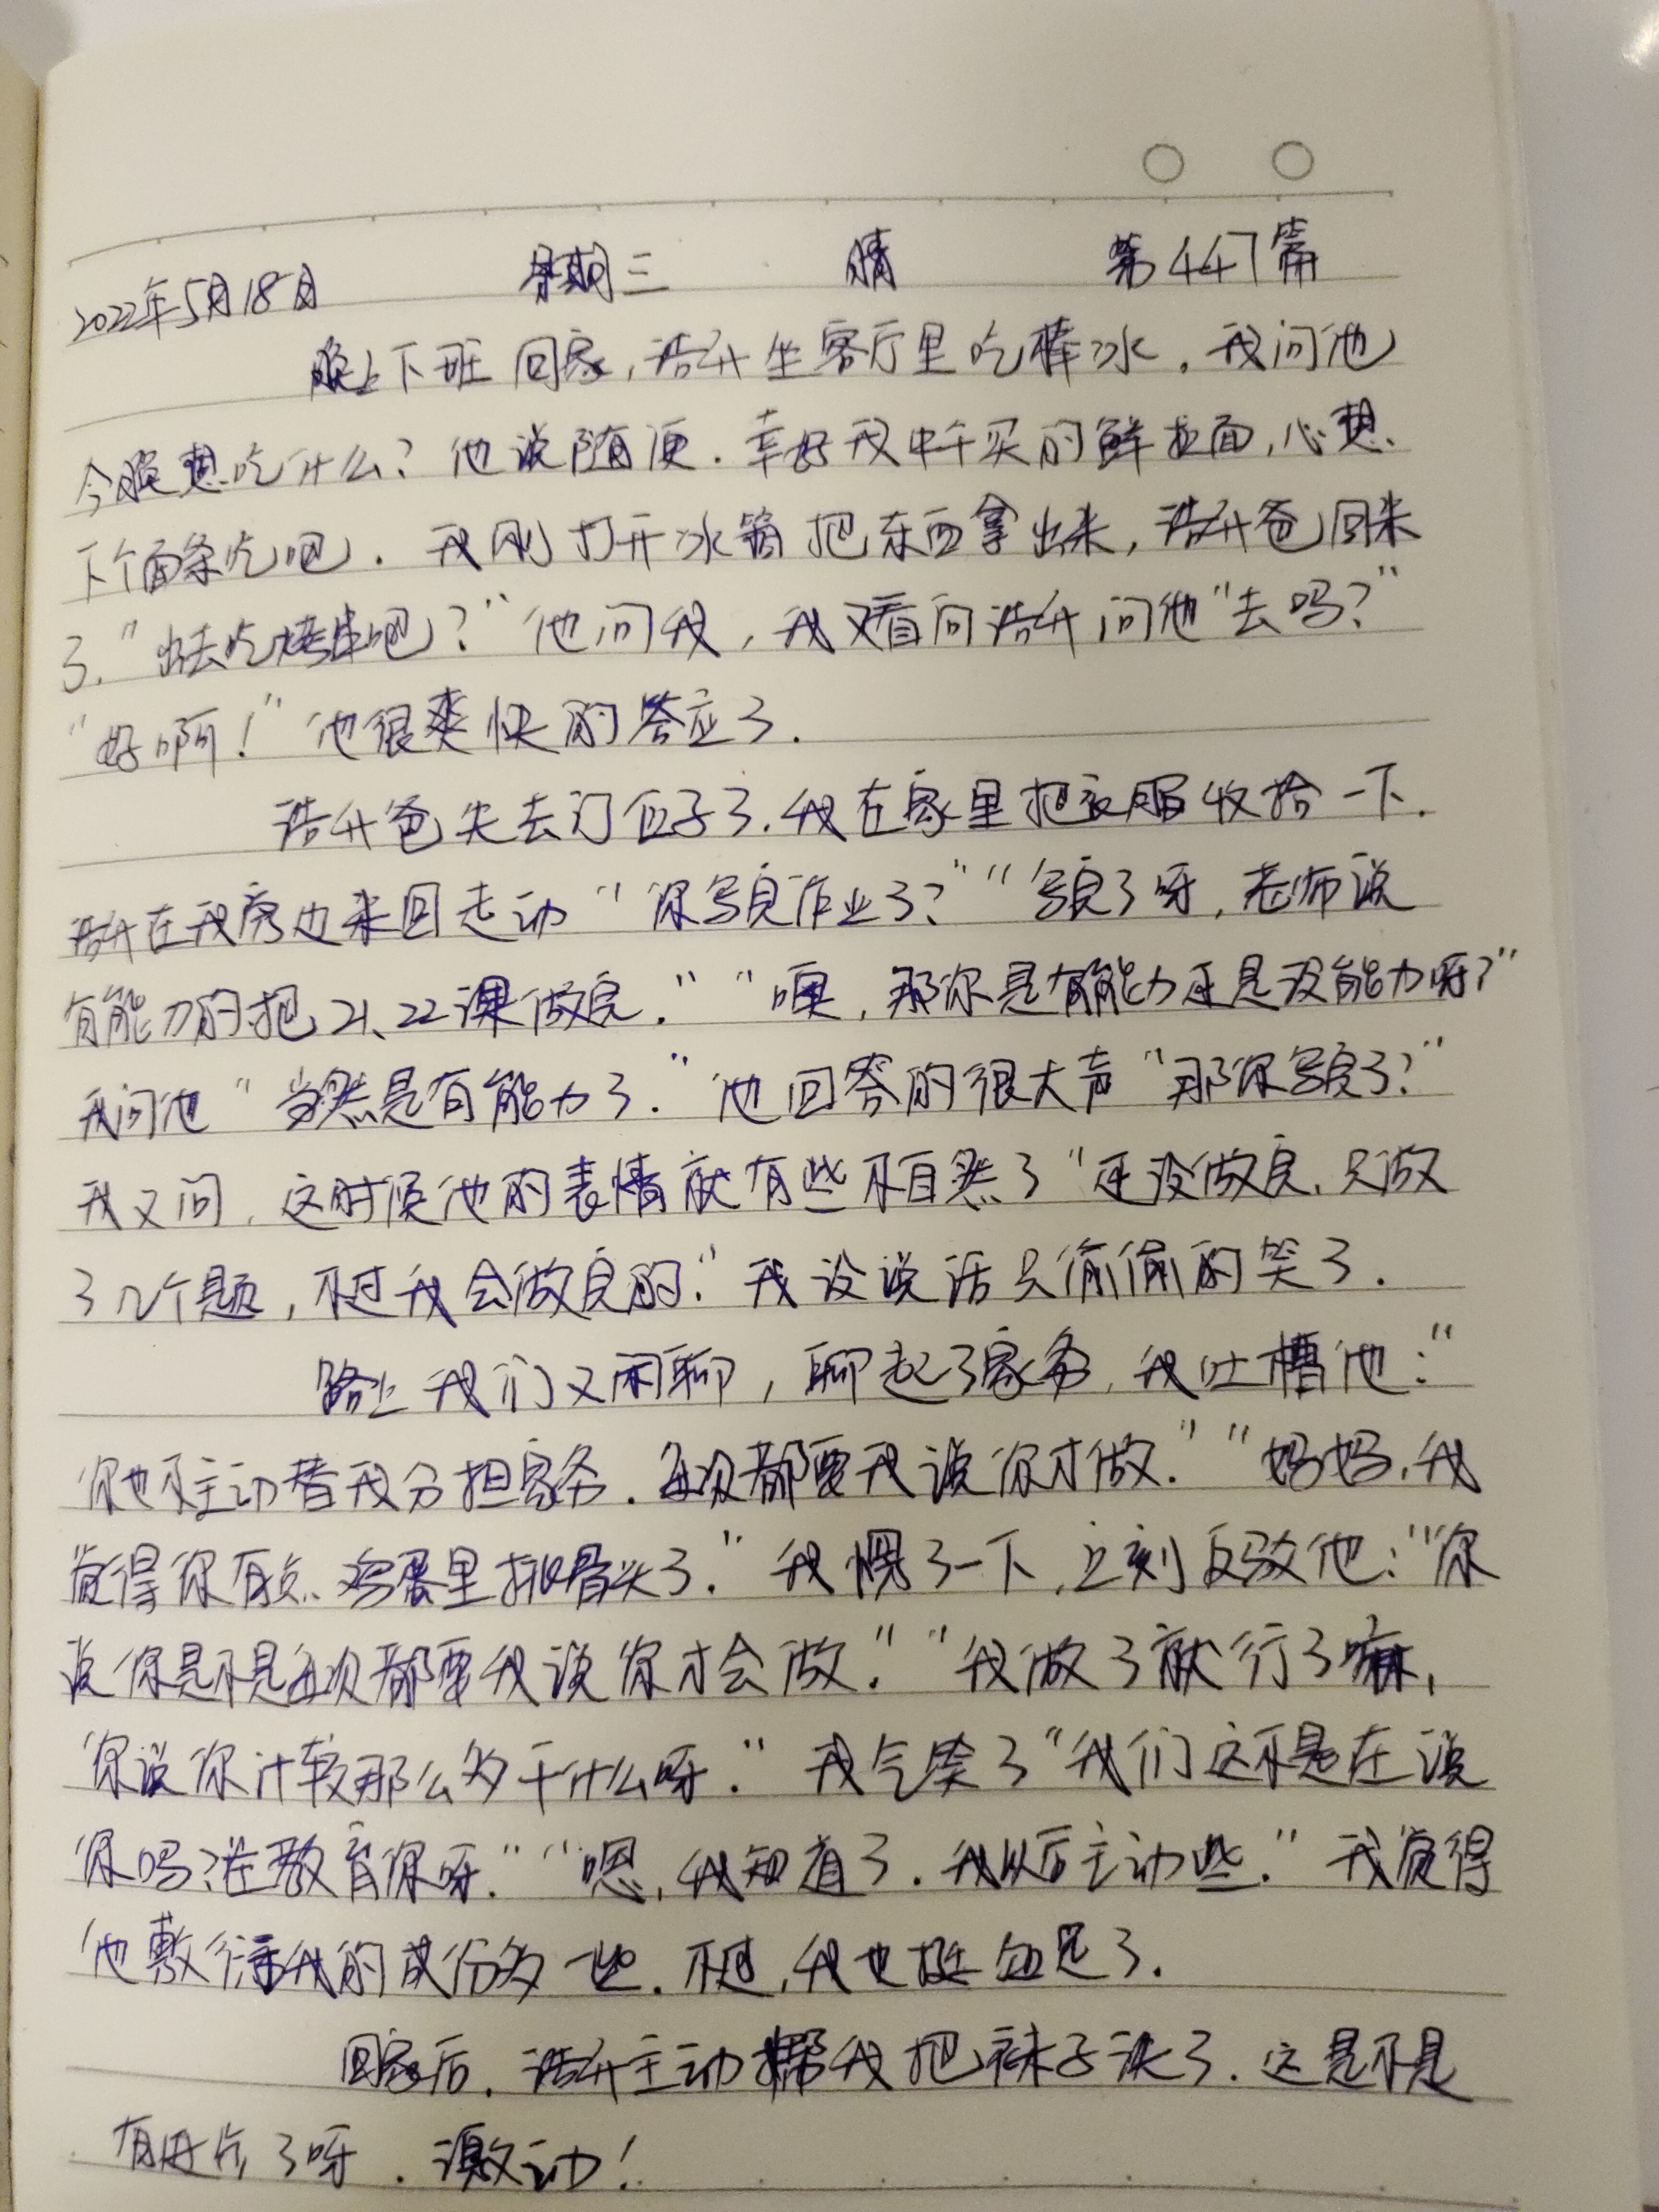 2022年5月18日 星期三 晴 第447篇
晚上下班回家,浩升坐客厅里吃棒冰。我问他
今晚想吃什么?他说随便.幸好我中午买的鲜拉面,心想
下个面条吃吧.我刚打开冰箱把东西拿出来,浩升爸回来
了."出去吃烤串吧?"他问我,我又看向浩升问他"去吗?"
"好啊!"他很爽快的答应了.
浩升爸先去订位子了.我在家里把衣服收拾一下.
浩升在我旁边来回走动"你写完作业了?""写完了呀,老师说
有能力的把21、22课做完.""噢,那你是有能力还是没能力呀?"
我问他"当然是有能力了."他回答的很大声"那你写完了?"
我又问,这时候他的表情就有些不自然了"还没做完,只做
了几个题,不过我会做完的."我没说话只偷偷的笑了.
路上我们又闲聊,聊起了家务,我吐槽他:"
你也不主动替我分担家务.每次都要我说你才做.""妈妈,我
觉得你有点鸡蛋里挑骨头了."我愣了一下,立刻反驳他:"你
说你是不是每次都要我说你才会做.""我做了就行了嘛,
你说你计较那么多干什么呀."我气笑了"我们这不是在说
你吗?在教育你呀.""嗯,我知道了.我以后主动些."我觉得
他敷衍我的成份多一些.不过,我也挺知足了.
回家后.浩升主动帮我把袜子洗了.这是不是
有进步了呀.激动!